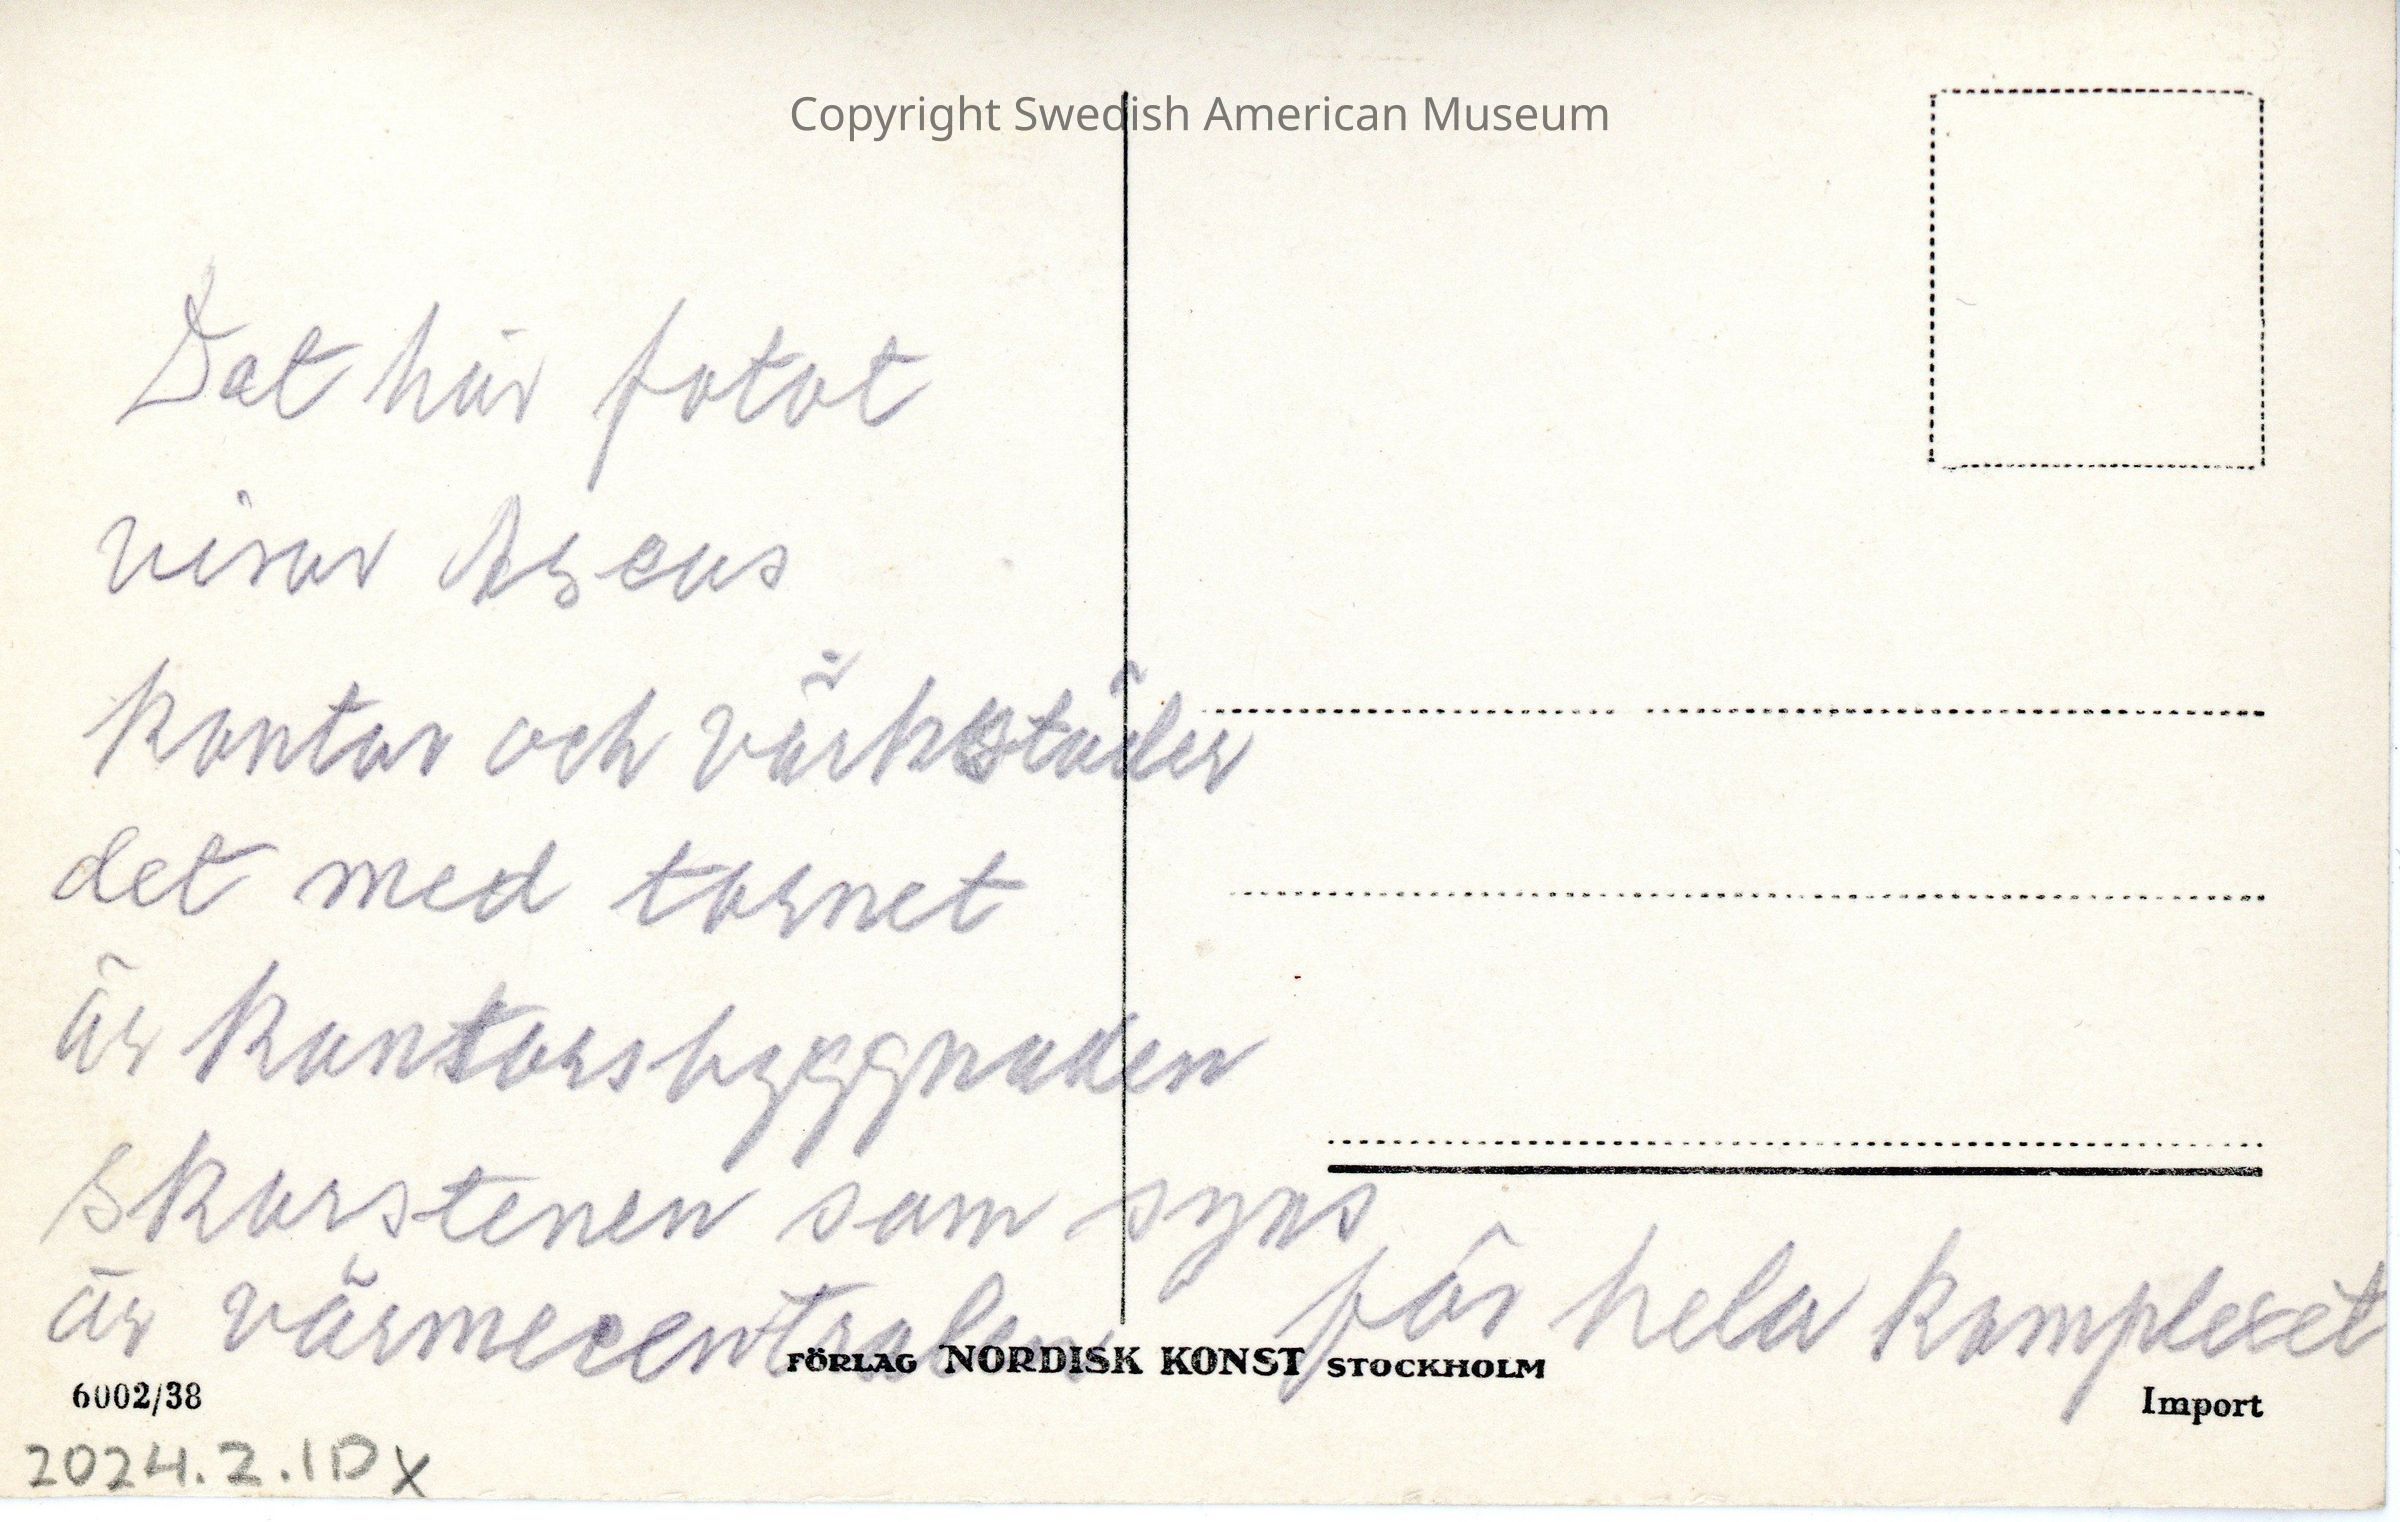 Copyright Swedish American Museum
Det här fotot
visar Aseas
kontor och värkstäder
det med tornet
är kontorsbyggnaden
Skorstenen som syns
är värmecentralen för hela komplexet
FÖRLAG NORDISK KONST STOCKHOLM
6002/38
Import
2024.2.1DX